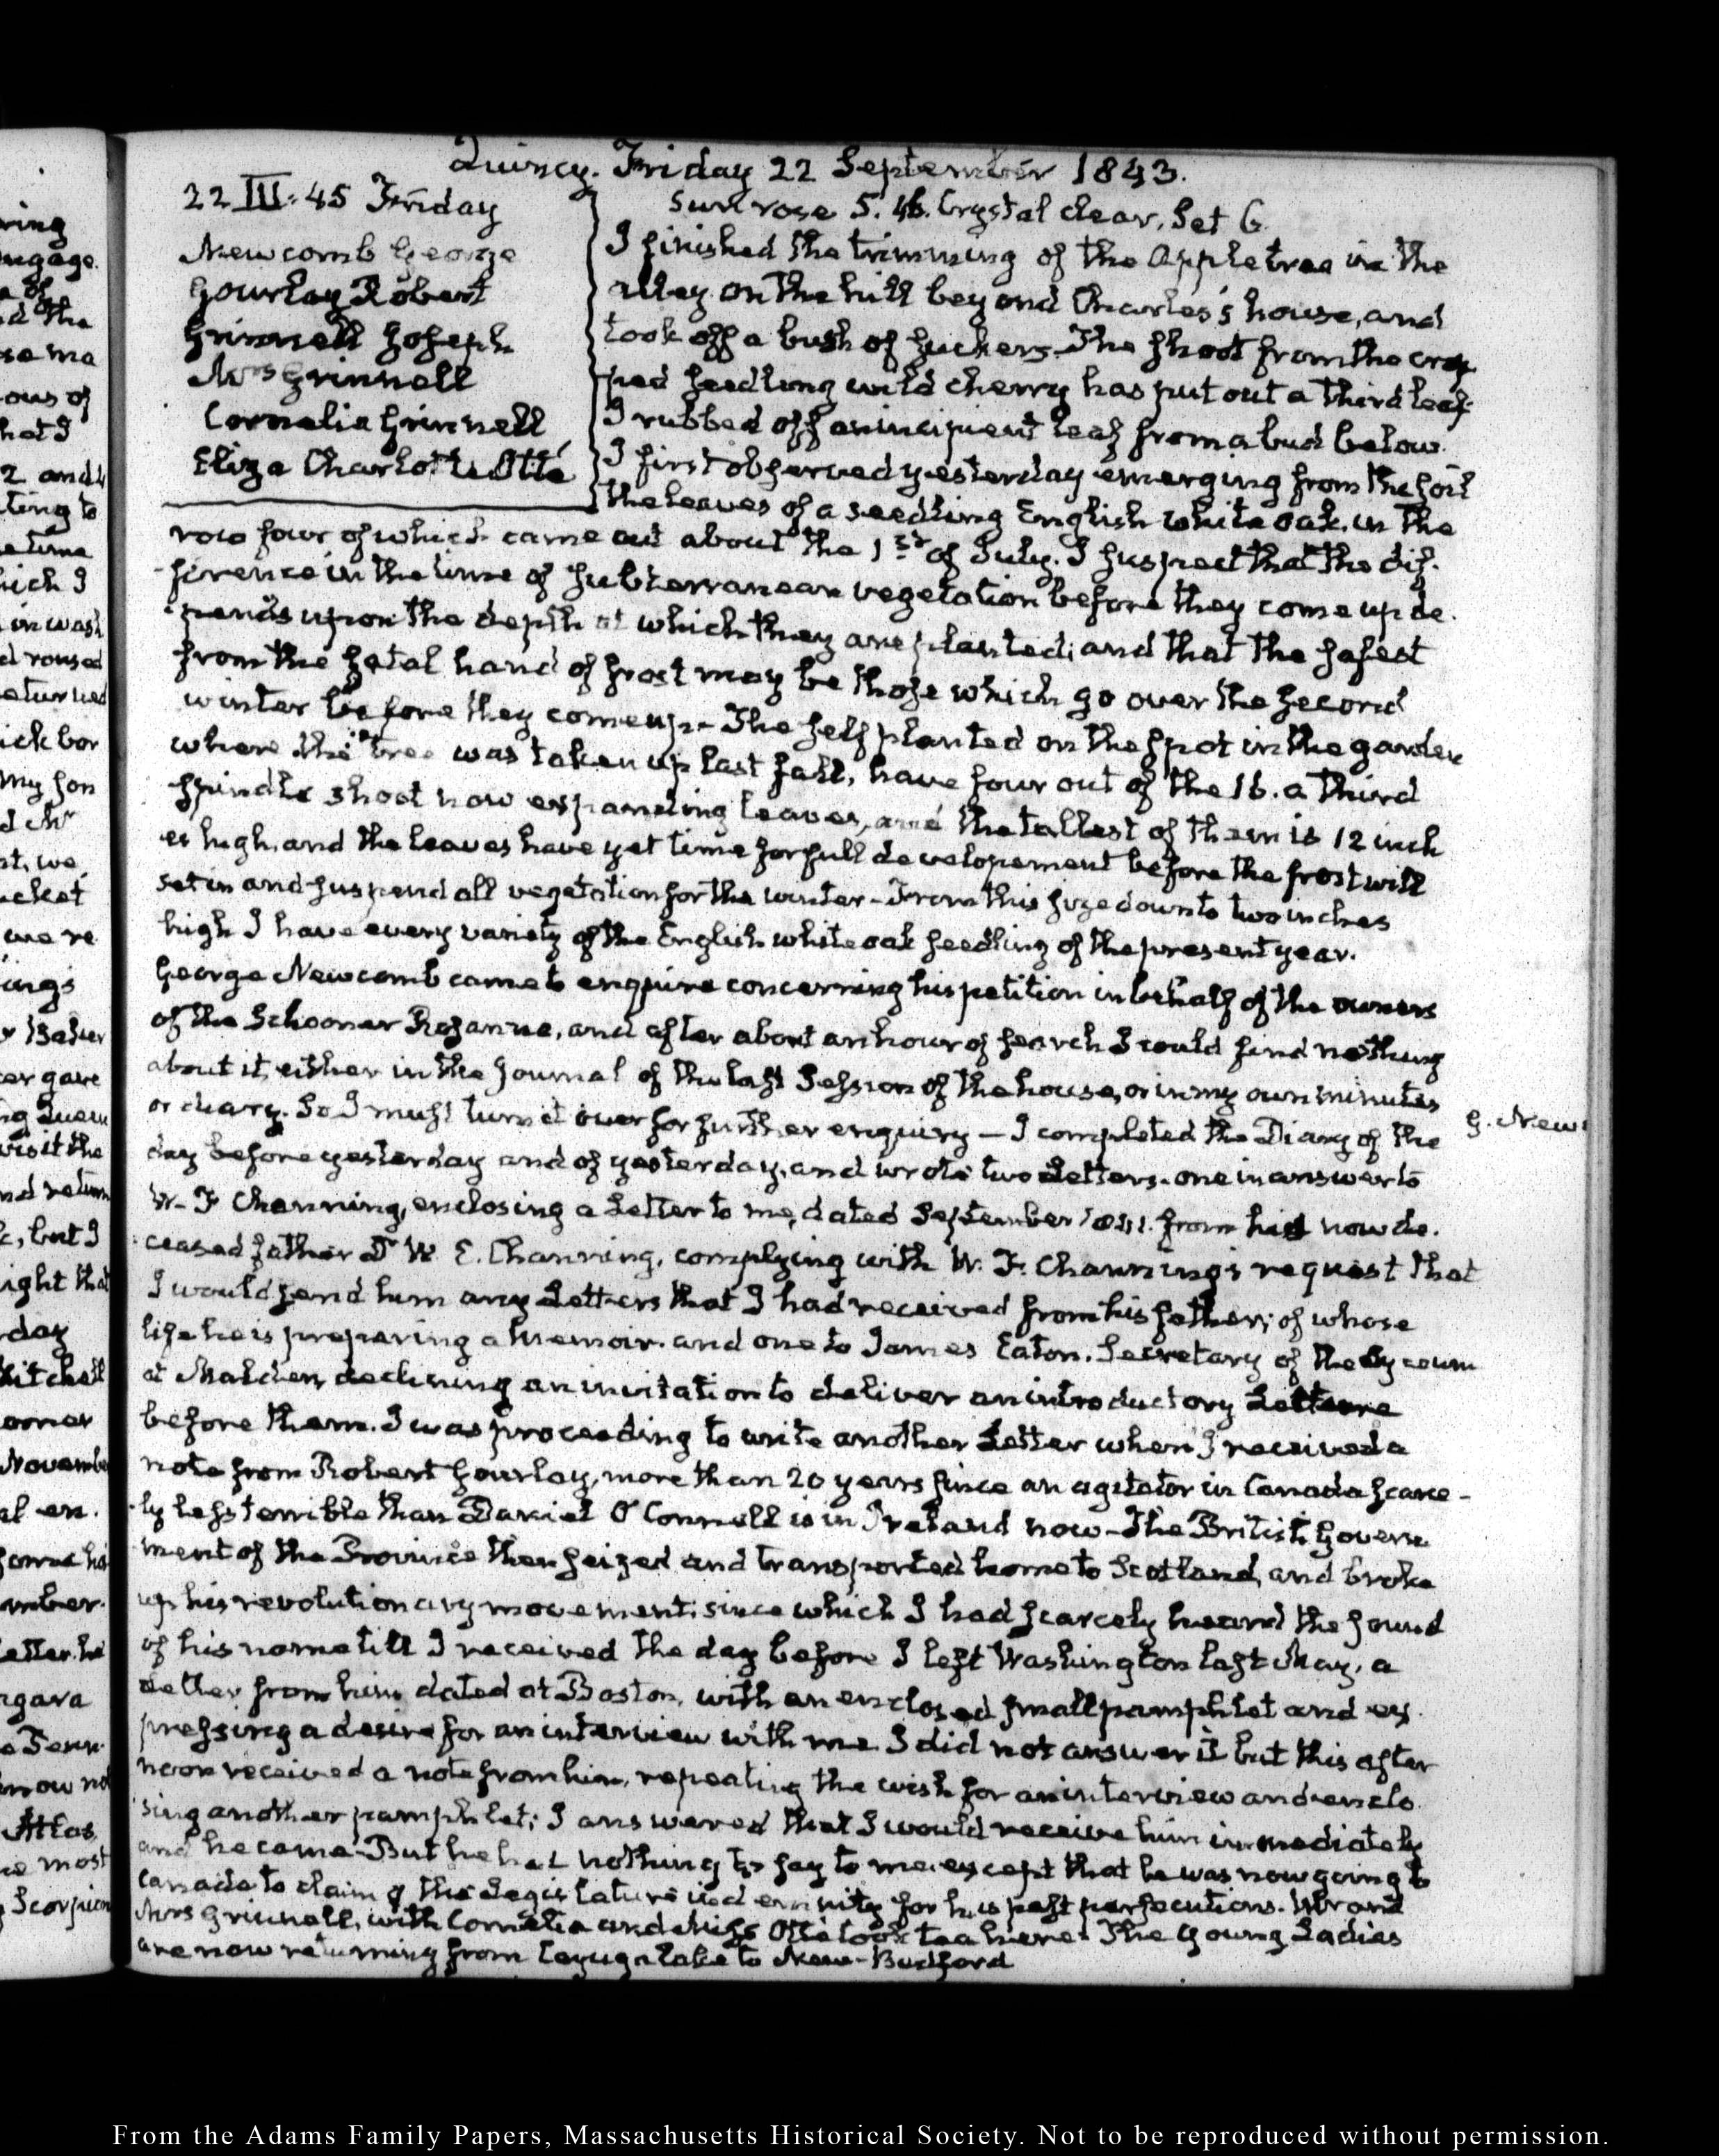 Quincy. Friday 22 September 1843.
22 III:45 Friday
Newcomb George
Gourlay Robert
Grinnell Joseph
Mrs Grinnell
Cornelia Grinnell
Eliza Charlotte Otté
Sun rose 5.46. Crystal clear, Set 6
I finished the trimming of the Appletree in the
alley on the hill beyond Charles's house, and
took off a bush of suckers. The shoot from the crop
ped seedling wild cherry has put out a third leaf.
I rubbed off an incipient leaf from a bud below.
I first observed yesterday emerging from the soil
the leaves of a seedling English white oak, in the
row four of which came out about the 1st of July. I suspect that the dif-
ference in the time of subterranean vegetation before they come up de-
pends upon the depth at which they are planted; and that the safest
from the fatal hand of frost may be those which go over the second
winter before they come up - The self planted on the spot in the garden
where the tree was taken up last fall, have four out of the 16. a third
spindle shoot now expanding leaves, and the tallest of them is 12 inch
es high, and the leaves have yet time for full developement before the frost will
set in and suspend all vegetation for the winter - From this size down to two inches
high I have every variety of the English white oak seedling of the present year.
George Newcomb came to enquire concerning his petition in behalf of the owners
of the Schooner Rosanna, and after about an hour of search I could find nothing
about it, either in the Journal of the last Session of the house, or in my own minutes
or diary. So I must turn it over for further enquiry — I completed the Diary of the
G. New
day before yesterday and of yesterday, and wrote two Letters. one in answer to
W. F Channing, enclosing a Letter to me, dated September 1841. from his now de-
ceased father Dr W. E. Channing, complying with W. F. Channing's request that
I would send him any Letters that I had received from his father; of whose
life he is preparing a Memoir. and one to James Eaton. Secretary of the Lyceum
at Malden, declining an invitation to deliver an introductory Lecture
before them. I was proceeding to write another Letter when I received a
note from Robert Gourlay, more than 20 years since an agitator in Canada scarce-
ly less terrible than Daniel O'Connell is in Ireland now - The British Govern
ment of the Province then seized and transported home to Scotland, and broke
up his revolutionary movement: since which I had scarcely heard the sound
of his name till I received the day before I left Washington last May, a
Letter from him dated at Boston, with an enclosed small pamphlet and ex-
pressing a desire for an interview with me. I did not answer it but this after
noon received a note from him, repeating the wish for an interview and enclo
sing another pamphlet; I answered that I would receive him immediately
and he came - But he had nothing to say to me, except that he was now going to
Canada to claim of the Legislature indemnity for his past persecutions. Mr and
Mrs Grinnell, with Cornelia and Miss Otté took tea here. The young Ladies
are now returning from Cayuga lake to New-Bedford
From the Adams Family Papers, Massachusetts Historical Society. Not to be reproduced without permission.